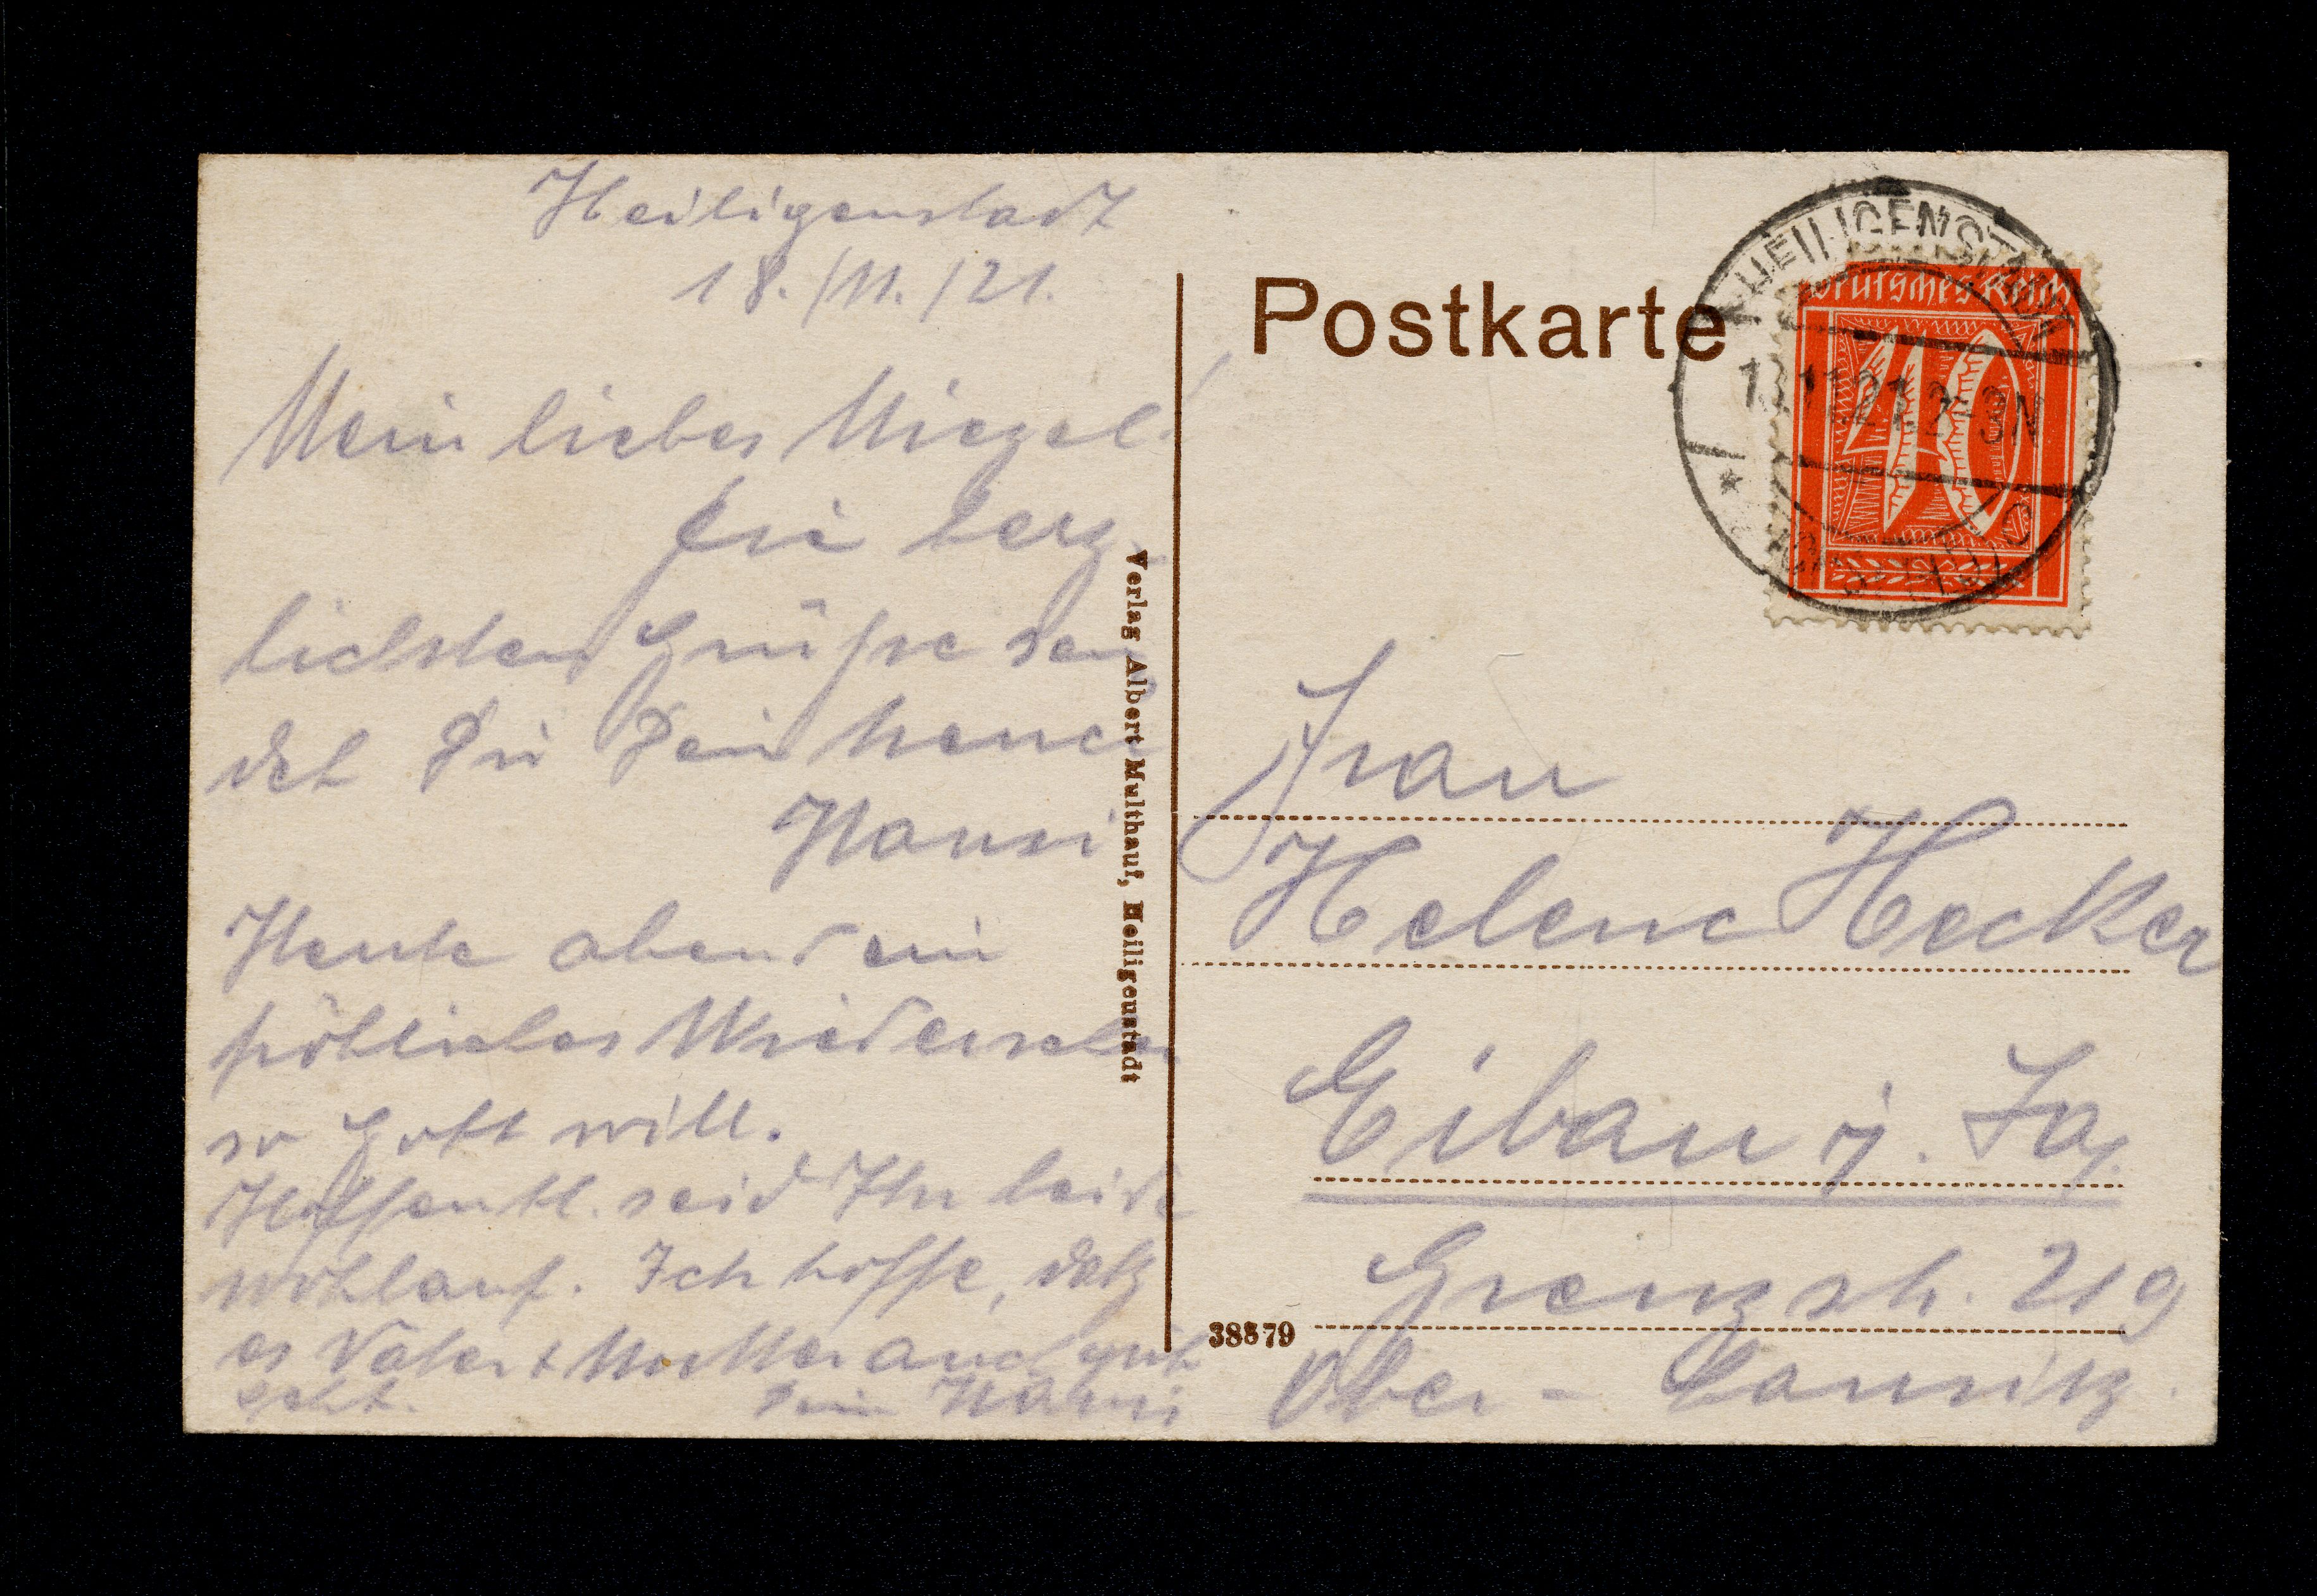 Heiligenstadt
18./11./21.
Mein liebes Miezel!
Die herz-
lichsten Grüße sen-
det Dir Dein treuer
Hansi
Heute abend ein
fröhliches Wiedersehen
so Gott will.
Hoffentl. seid Ihr beide
wohlauf. Ich hoffe, daß
es Vater + Mutter auch gut
geht. Dein Hansi
Verlag Albert Multhauf, Heiligenstadt
Postkarte
HEILIGENSTADT
11.21. 2-3N
(EICHSFELD)
Deutsches Reich
40
Frau
Helene Hecker
Eibau i. Sa.
Grenzstr. 219
Ober-Lausitz.
38579